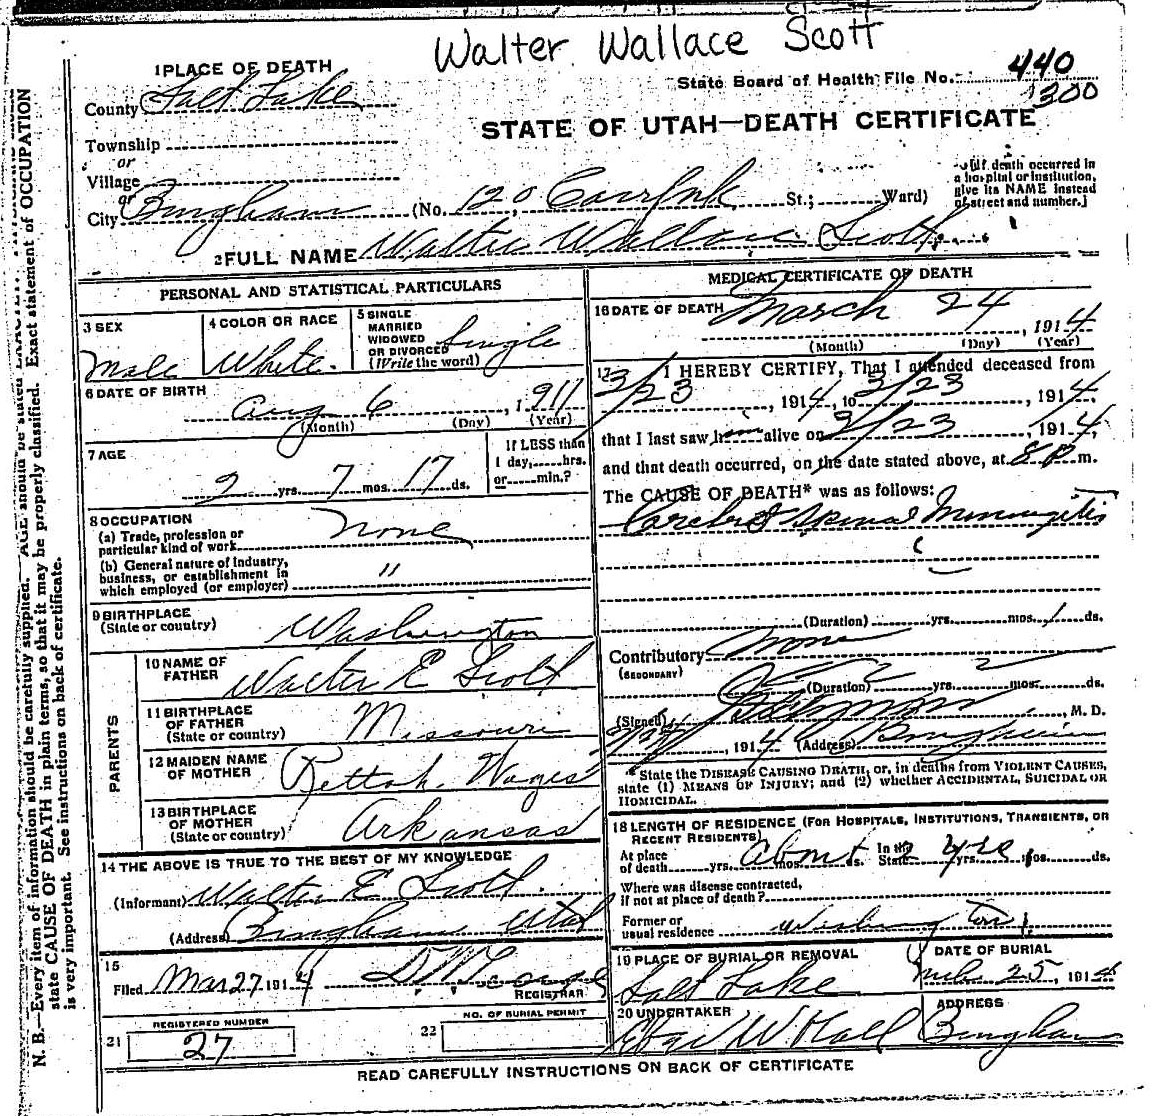 Walter Wallace Scott
1 PLACE OF DEATH
State Board of Health File No. 440
300
County Salt Lake
STATE OF UTAH—DEATH CERTIFICATE
Township
or
Village
or
City Bingham (No. 120 Carr Frk St.; Ward)
(If death occurred in
a hospital or institution,
give its NAME instead
of street and number.)
2 FULL NAME Walter Wallace Scott
PERSONAL AND STATISTICAL PARTICULARS
3 SEX
Male
4 COLOR OR RACE
White
5 SINGLE
MARRIED
WIDOWED
OR DIVORCED
(Write the word)
Single
6 DATE OF BIRTH
Aug 6, 1911
(Month) (Day) (Year)
7 AGE
2 yrs. 7 mos. 17 ds.
If LESS than
1 day, hrs.
or min.?
8 OCCUPATION
(a) Trade, profession or
particular kind of work None
(b) General nature of industry,
business, or establishment in
which employed (or employer) "
9 BIRTHPLACE
(State or country) Washington
PARENTS
10 NAME OF
FATHER Walter E Scott
11 BIRTHPLACE
OF FATHER
(State or country) Missouri
12 MAIDEN NAME
OF MOTHER Wages
13 BIRTHPLACE
OF MOTHER
(State or country) Arkansas
14 THE ABOVE IS TRUE TO THE BEST OF MY KNOWLEDGE
(Informant) Walter E Scott
(Address) Bingham Utah
15
Filed Mar 27 1914
REGISTRAR
REGISTERED NUMBER
21 27
NO. OF BURIAL PERMIT
22
MEDICAL CERTIFICATE OF DEATH
16 DATE OF DEATH March 24, 1914
(Month) (Day) (Year)
17 I HEREBY CERTIFY, That I attended deceased from
3/23, 1914, to 3/23, 1914,
that I last saw him alive on 3/23, 1914,
and that death occurred, on the date stated above, at 8 P m.
The CAUSE OF DEATH* was as follows:
Spinal
(Duration) yrs. mos. 1 ds.
Contributory None
(SECONDARY)
(Duration) yrs. mos. ds.
(Signed) , M. D.
, 1914 (Address) Bingham
*State the DISEASE CAUSING DEATH, or, in deaths from VIOLENT CAUSES,
state (1) MEANS OF INJURY; and (2) whether ACCIDENTAL, SUICIDAL OR
HOMICIDAL.
18 LENGTH OF RESIDENCE (FOR HOSPITALS, INSTITUTIONS, TRANSIENTS, OR
RECENT RESIDENTS)
At place
of death yrs. mos. ds. In the
State yrs. mos. ds.
about 2 yrs
Where was disease contracted,
if not at place of death?
Former or
usual residence
19 PLACE OF BURIAL OR REMOVAL
Salt Lake
DATE OF BURIAL
25, 1914
20 UNDERTAKER
W Hall
ADDRESS
Bingham
READ CAREFULLY INSTRUCTIONS ON BACK OF CERTIFICATE
N. B.—Every item of information should be carefully supplied. AGE should be stated EXACTLY.
state CAUSE OF DEATH in plain terms, so that it may be properly classified. Exact statement of OCCUPATION
is very important. See instructions on back of certificate.